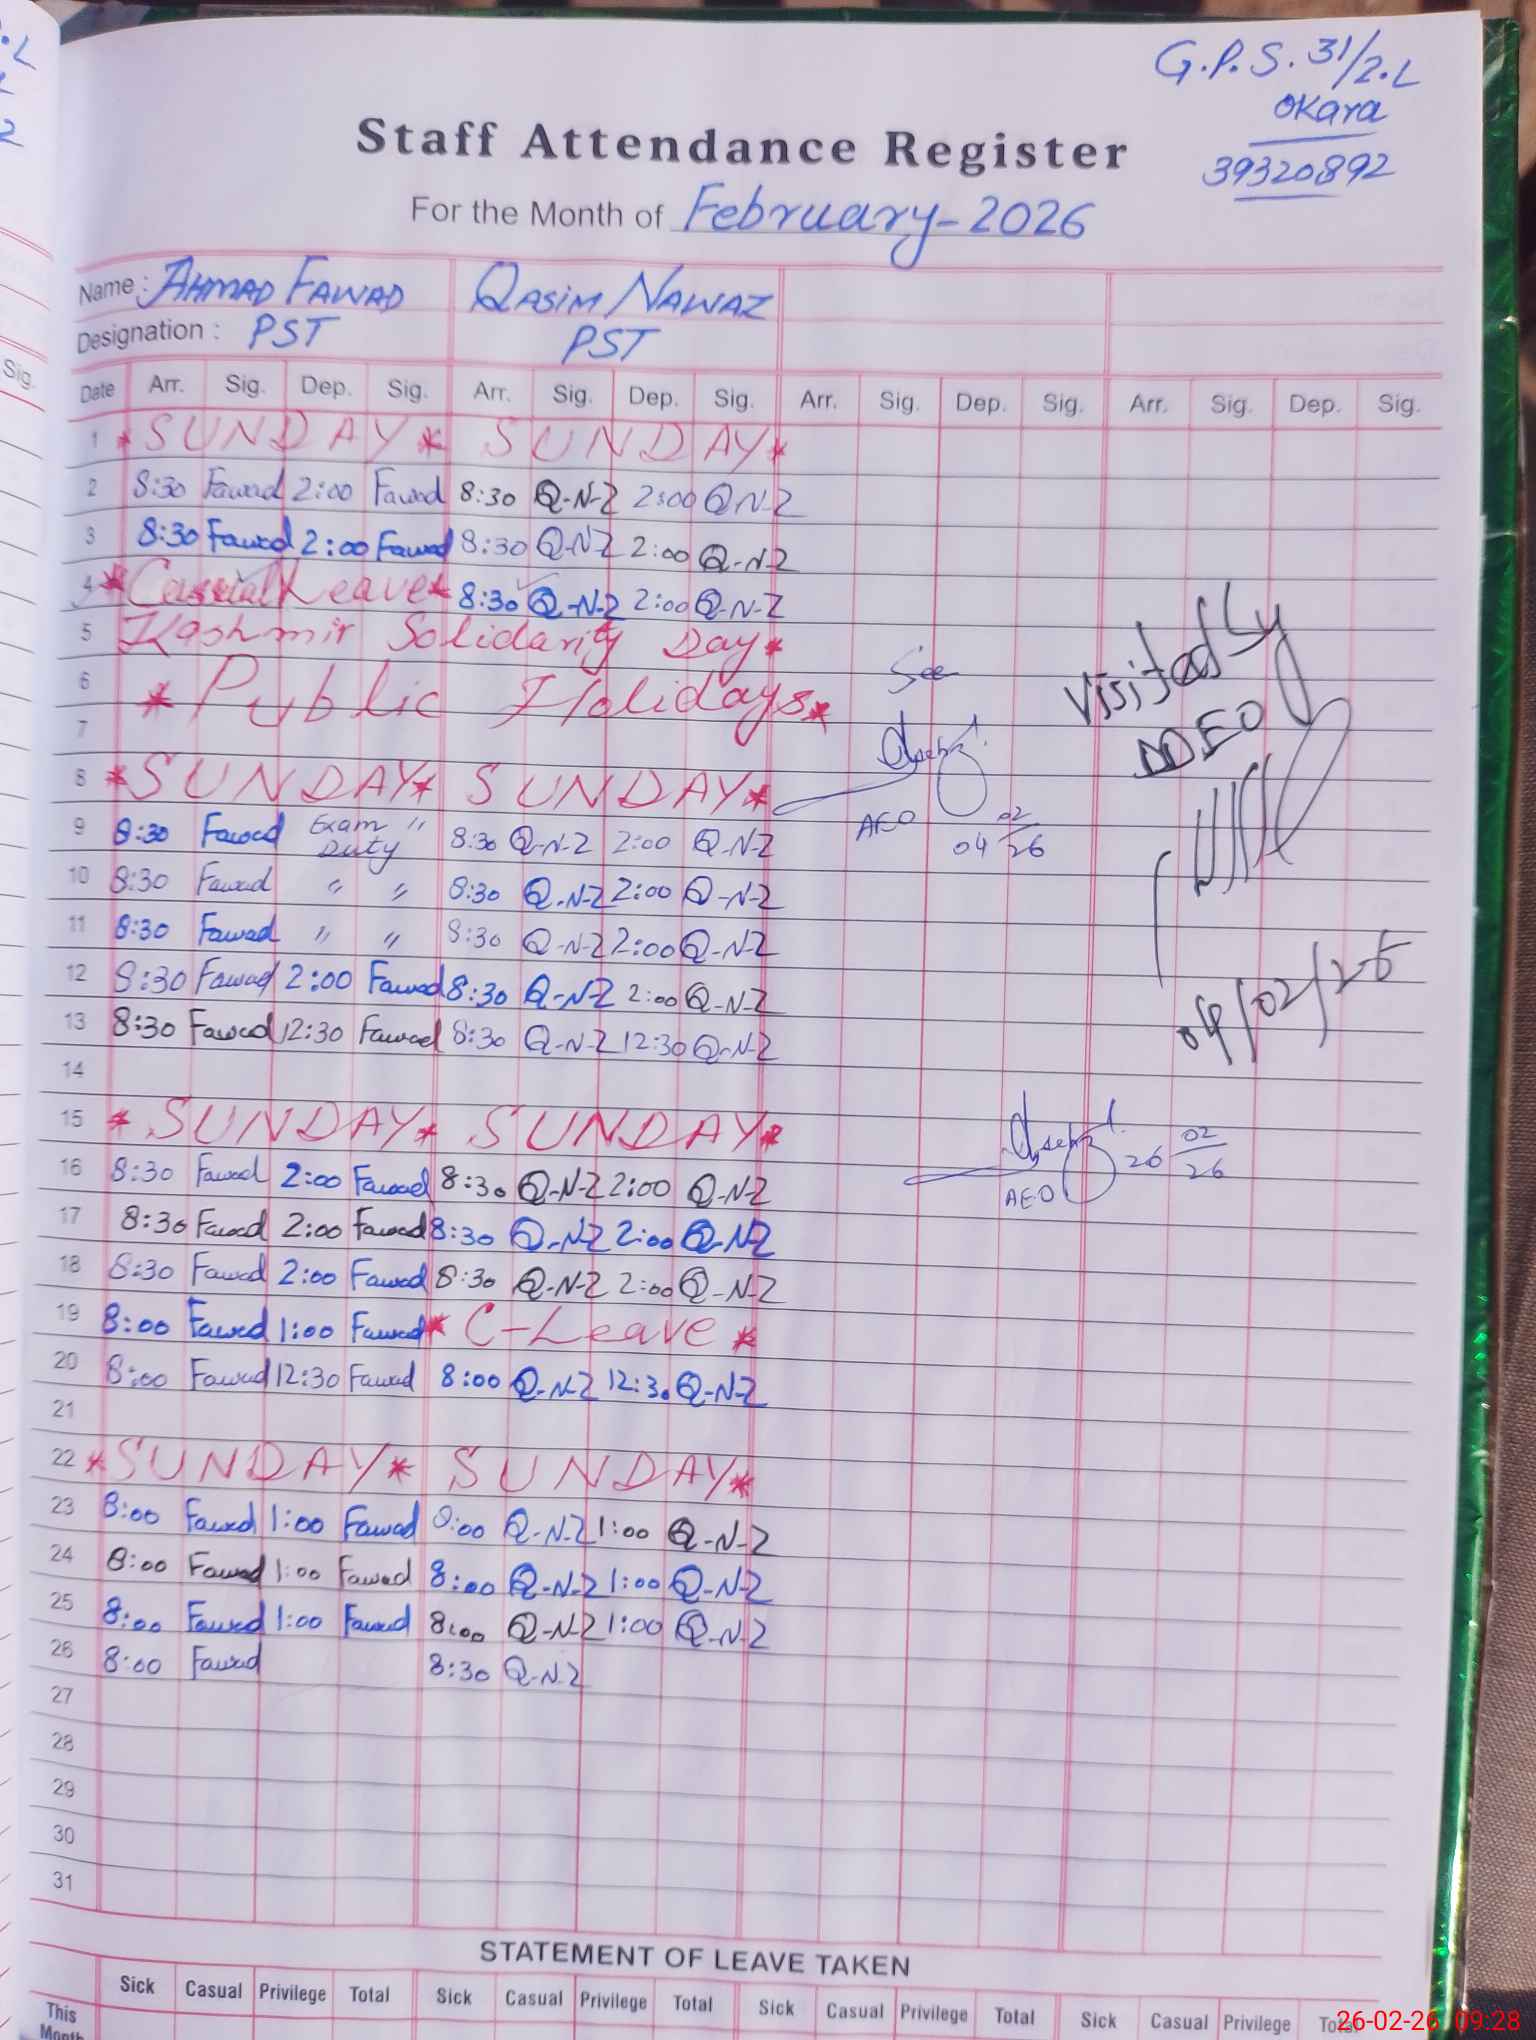 G.P.S. 31/2.L
Okara
39320892
Staff Attendance Register
For the Month of February-2026
Name: AHMAD FAWAD QASIM NAWAZ
Designation: PST PST
Date Arr. Sig. Dep. Sig. Arr. Sig. Dep. Sig. Arr. Sig. Dep. Sig. Arr. Sig. Dep. Sig.
1 * SUNDAY * SUNDAY *
2 8:30 Fawad 2:00 Fawad 8:30 Q-N-Z 2:00 QN-Z
3 8:30 Fawad 2:00 Fawad 8:30 Q-NZ 2:00 Q-N-Z
4 * Casual Leave * 8:30 Q-N-Z 2:00 Q-N-Z
5 Kashmir Solidarity Day *
6 * Public Holidays *
7
See
Visited by
DDEO
8 * SUNDAY * SUNDAY *
9 8:30 Fawad Exam " 8:30 Q-N-Z 2:00 Q-N-Z
Duty
AEO 04 02/26
10 8:30 Fawad " " 8:30 Q-N-Z 2:00 Q-N-Z
11 8:30 Fawad " " 8:30 Q-N-Z 2:00 Q-N-Z
12 8:30 Fawad 2:00 Fawad 8:30 Q-N-Z 2:00 Q-N-Z
13 8:30 Fawad 12:30 Fawad 8:30 Q-N-Z 12:30 Q-N-Z
04/02/26
14
15 * SUNDAY * SUNDAY *
16 8:30 Fawad 2:00 Fawad 8:30 Q-N-Z 2:00 Q-N-Z
AEO 26 02/26
17 8:30 Fawad 2:00 Fawad 8:30 Q-N-Z 2:00 Q-N-Z
18 8:30 Fawad 2:00 Fawad 8:30 Q-N-Z 2:00 Q-N-Z
19 8:00 Fawad 1:00 Fawad * C-Leave *
20 8:00 Fawad 12:30 Fawad 8:00 Q-N-Z 12:30 Q-N-Z
21
22 * SUNDAY * SUNDAY *
23 8:00 Fawad 1:00 Fawad 8:00 Q-N-Z 1:00 Q-N-Z
24 8:00 Fawad 1:00 Fawad 8:00 Q-N-Z 1:00 Q-N-Z
25 8:00 Fawad 1:00 Fawad 8:00 Q-N-Z 1:00 Q-N-Z
26 8:00 Fawad 8:30 Q-N-Z
27
28
29
30
31
STATEMENT OF LEAVE TAKEN
Sick Casual Privilege Total Sick Casual Privilege Total Sick Casual Privilege Total Sick Casual Privilege
This
Month
26-02-26 09:28